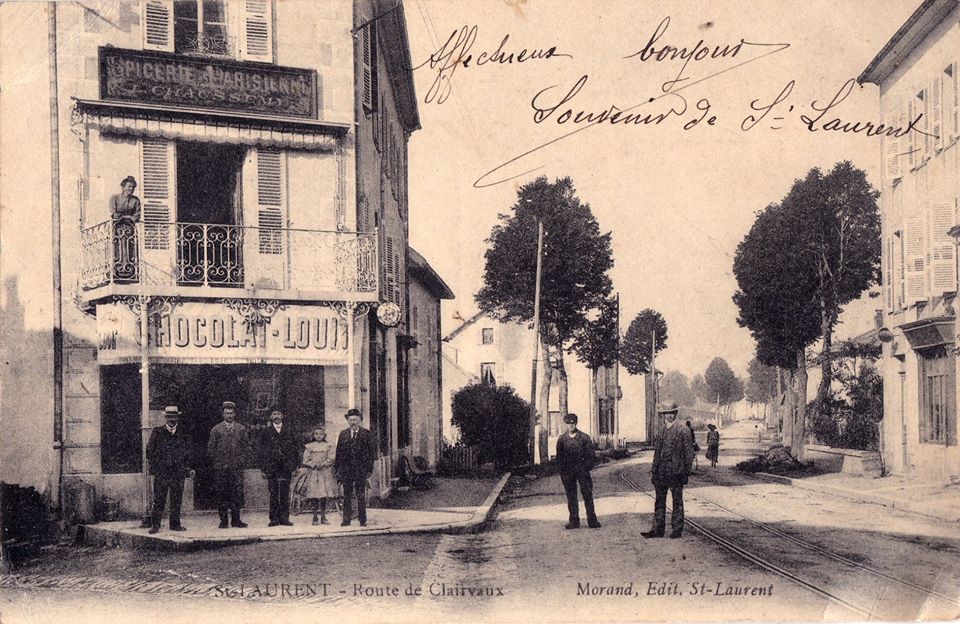 Affectueux bonjour
Souvenir de St Laurent
EPICERIE PARISIENNE
CHOCOLAT-LOUIT
St-LAURENT - Route de Clairvaux
Morand, Edit. St-Laurent